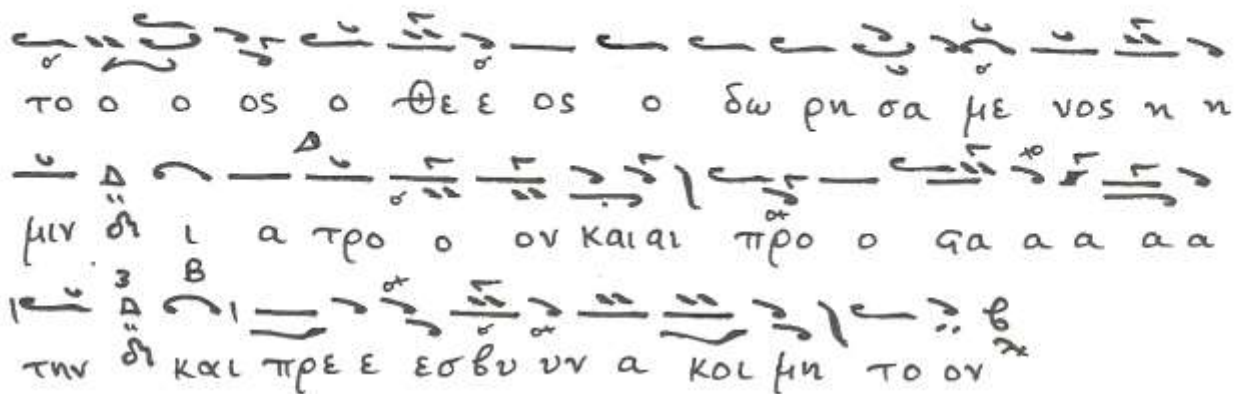 το ο ο ος ο Θε ε ος ο δω ρη σα με νος η η
μιν δι ι α τρο ο ον και αι προ ο ϛα α α α α
την δι και πρε ε εσβυ υν α κοι μη το ον